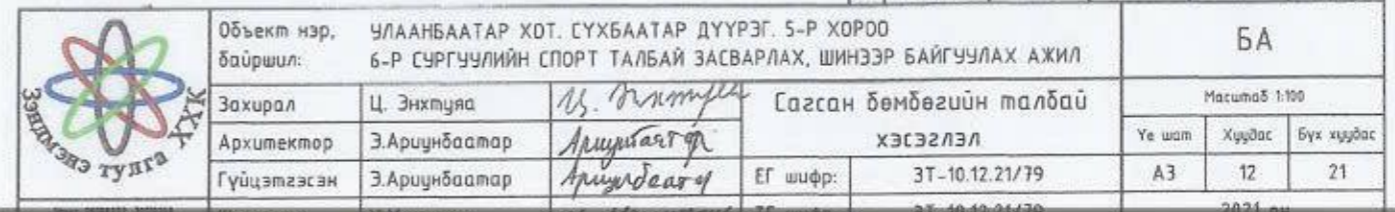 Объект нэр, байршил:
УЛААНБААТАР ХОТ. СҮХБААТАР ДҮҮРЭГ. 5-Р ХОРОО
6-Р СУРГУУЛИЙН СПОРТ ТАЛБАЙ ЗАСВАРЛАХ, ШИНЭЭР БАЙГУУЛАХ АЖИЛ
БА
Зэндмэнэ тулга ХХК
Захирал Ц. Энхтуяа Ц. Энхтуяа
Сагсан бөмбөгийн талбай
хэсэглэл
Масштаб 1:100
Архитектор Э.Ариунбаатар Ариунбаатар
Үе шат Хуудас Бүх хуудас
Гүйцэтгэсэн Э.Ариунбаатар Ариунбаатар ЕГ шифр: ЗТ-10.12.21/79 А3 12 21